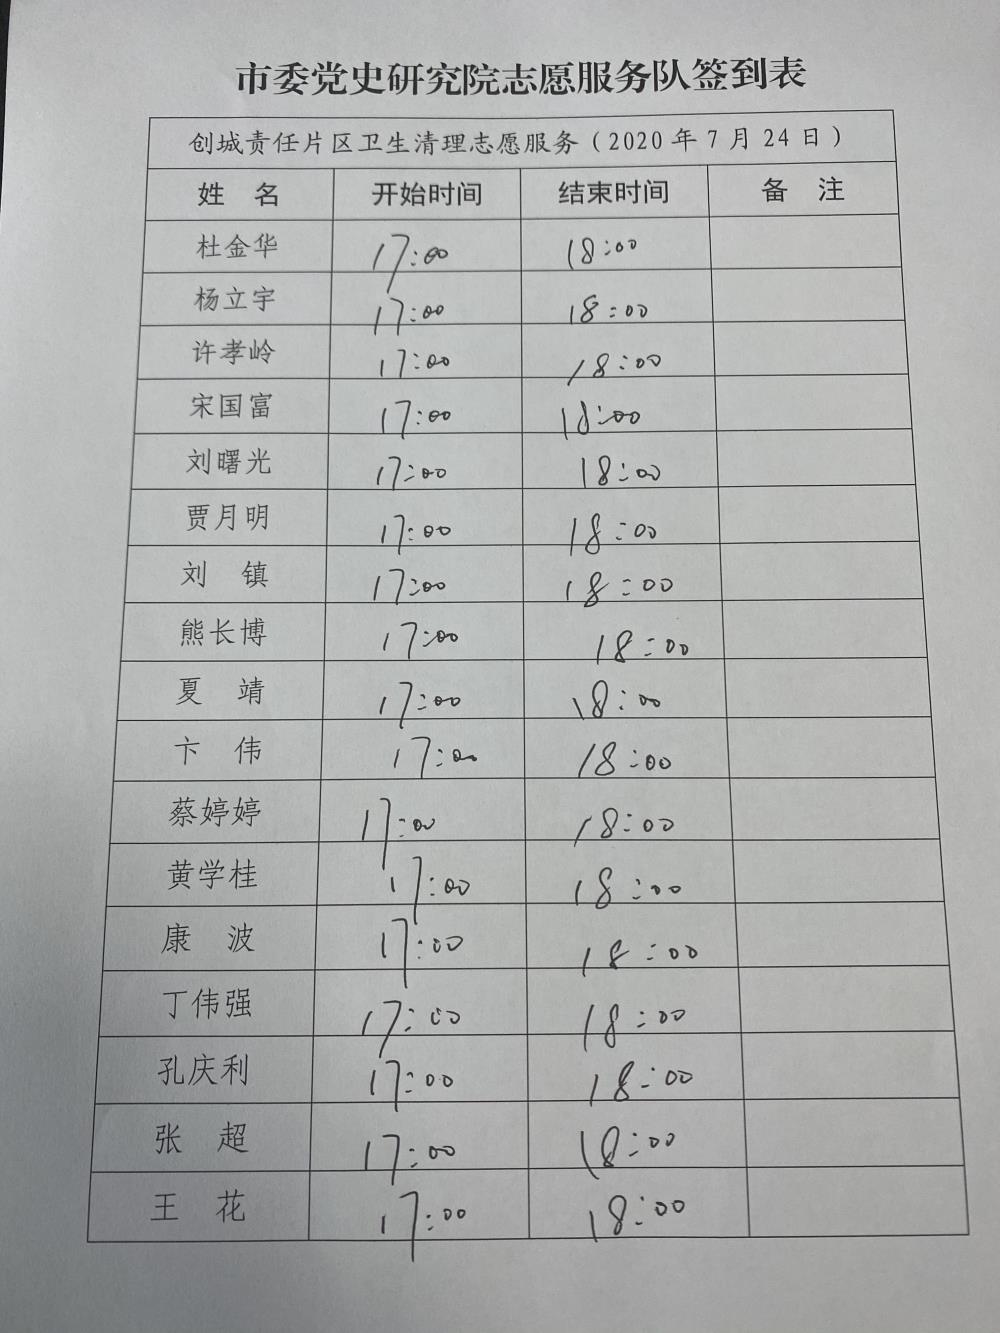 市委党史研究院志愿服务队签到表
创城责任片区卫生清理志愿服务（2020 年 7 月 24 日）
姓 名 开始时间 结束时间 备 注
杜金华 17:00 18:00
杨立宇 17:00 18:00
许孝岭 17:00 18:00
宋国富 17:00 18:00
刘曙光 17:00 18:00
贾月明 17:00 18:00
刘 镇 17:00 18:00
熊长博 17:00 18:00
夏 靖 17:00 18:00
卞 伟 17:00 18:00
蔡婷婷 17:00 18:00
黄学桂 17:00 18:00
康 波 17:00 18:00
丁伟强 17:00 18:00
孔庆利 17:00 18:00
张 超 17:00 18:00
王 花 17:00 18:00